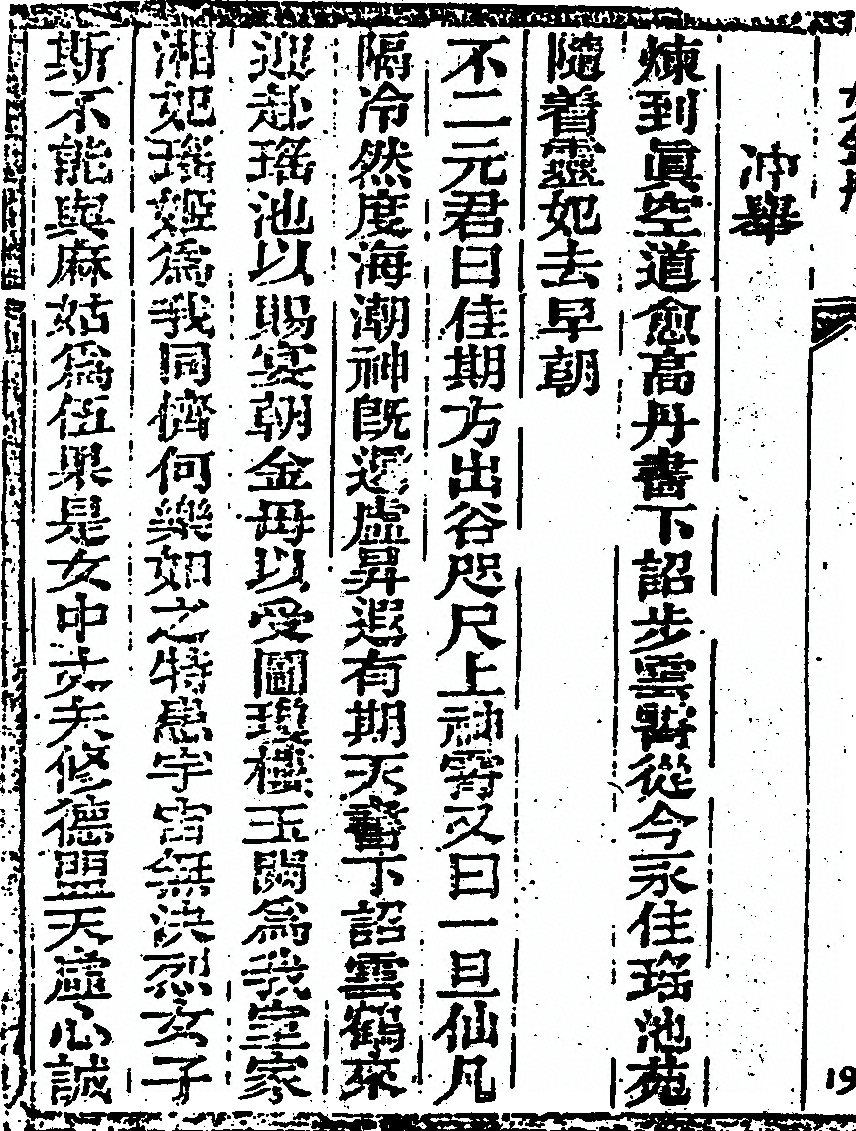 沖舉
煉到眞空道愈高丹書下詔步雲霄從今永住瑤池苑
隨着靈妃去早朝
不二元君曰佳期方出谷咫尺上神霄又曰一旦仙凡
隔冷然度海潮神旣還虛昇遐有期天書下詔雲鶴來
迎赴瑤池以賜宴朝金母以受圖瓊樓玉闕爲我室家
湘妃瑤姬爲我同儕何樂如之特患宇宙無決烈女子
斯不能與麻姑爲伍果是女中丈夫修德盟天虛心誠
19